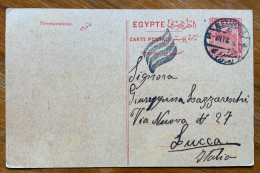 Correspondance.
EGYPTE
CARTE POSTALE
Signora
Giuseppina Lazzareschi
Via Nuova No 27
Lucca
Italia